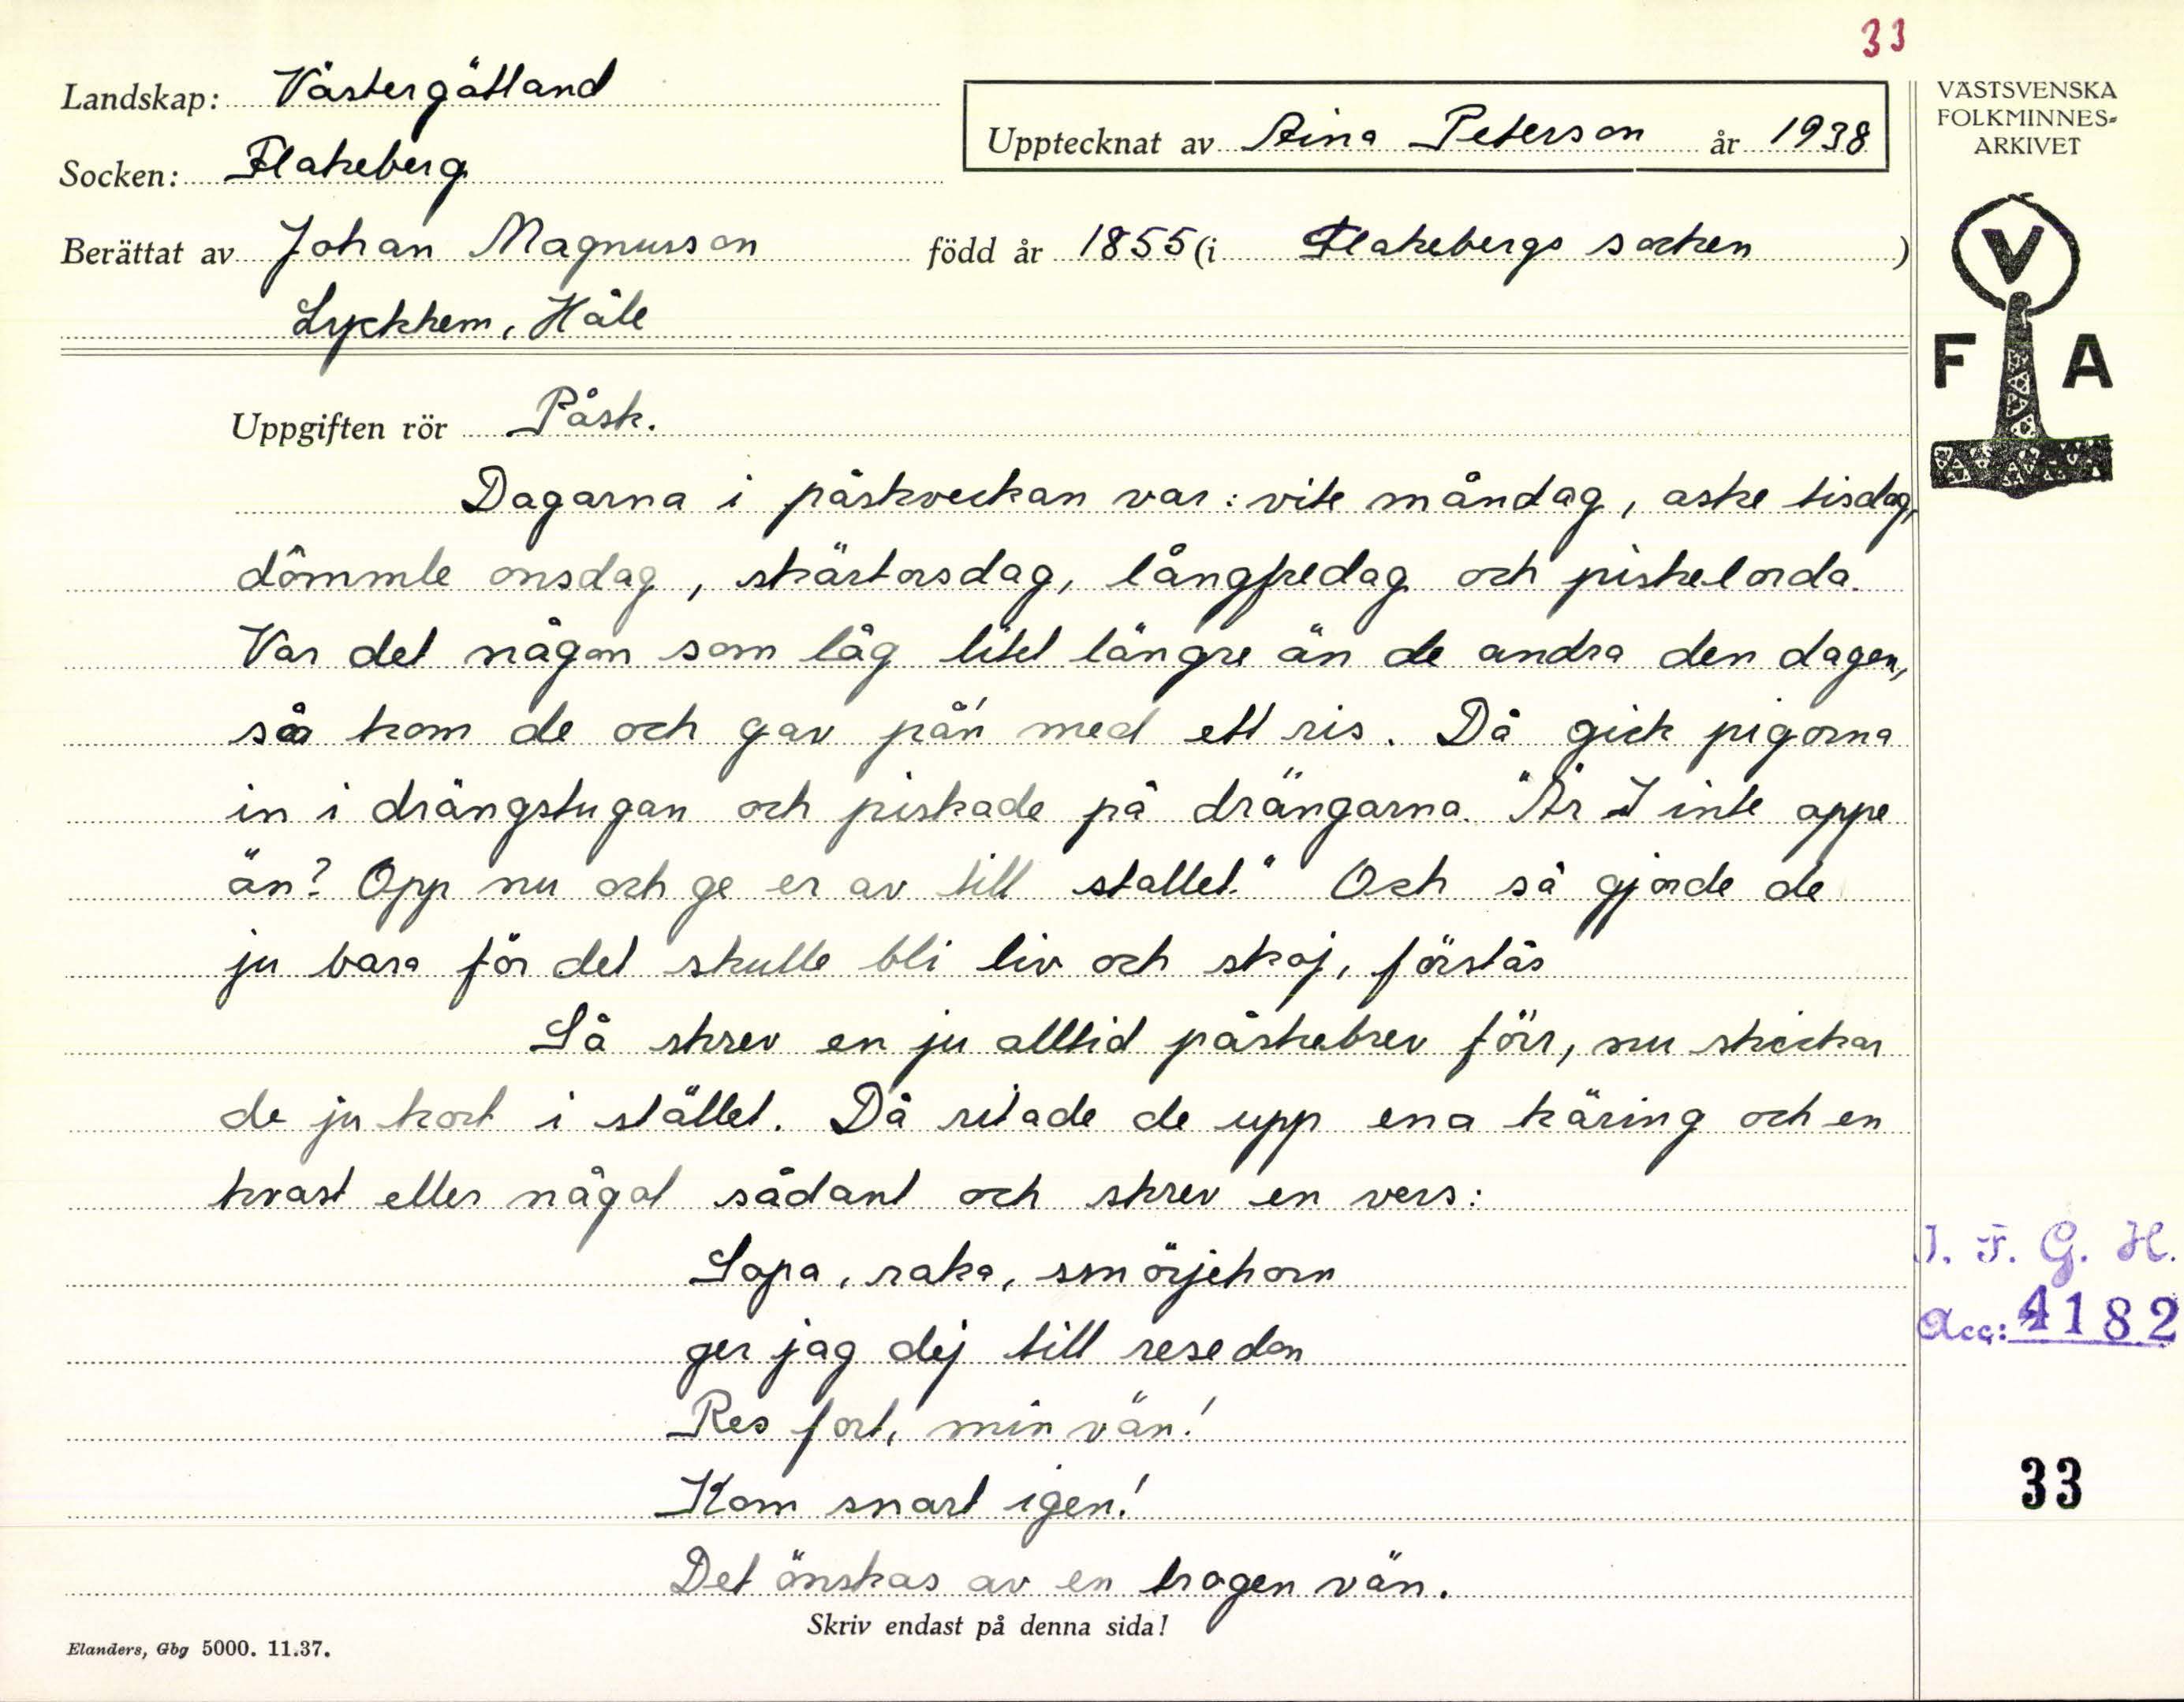 33
Landskap: Västergötland
Upptecknat av Aina Peterson år 1938
VÄSTSVENSKA
FOLKMINNES-
ARKIVET
Socken: Flakeberg
Berättat av Johan Magnusson född år 1855 (i Flakebergs socken)
Lyckhem, Håle
V
F A
Uppgiften rör Påsk.
Dagarna i påskveckan var: vite måndag, aske tisdag,
dômmle onsdag, skärtorsdag, långfredag och piskelorda.
Var det någon som låg litet längre än de andra den dagen,
så kom de och gav på'n med ett ris. Då gick pigorna
in i drängstugan och piskade på drängarna. "Är I inte oppe
än? Opp nu och ge er av till stallet." Och så gjorde de
ju bara för det skulle bli liv och skoj, förstås
Så skrev en ju alltid påskabrev förr, nu skickar
de ju kort i stället. Då ritade de upp ena käring och en
kvast eller något sådant och skrev en vers:
Sopa, raka, smörjehorn
ger jag dej till resedon
Res fort, min vän!
Kom snart igen!
Det önskas av en trogen vän.
I. F. G. H.
Acc: 4182
33
Skriv endast på denna sida!
Elanders, Gbg 5000. 11.37.